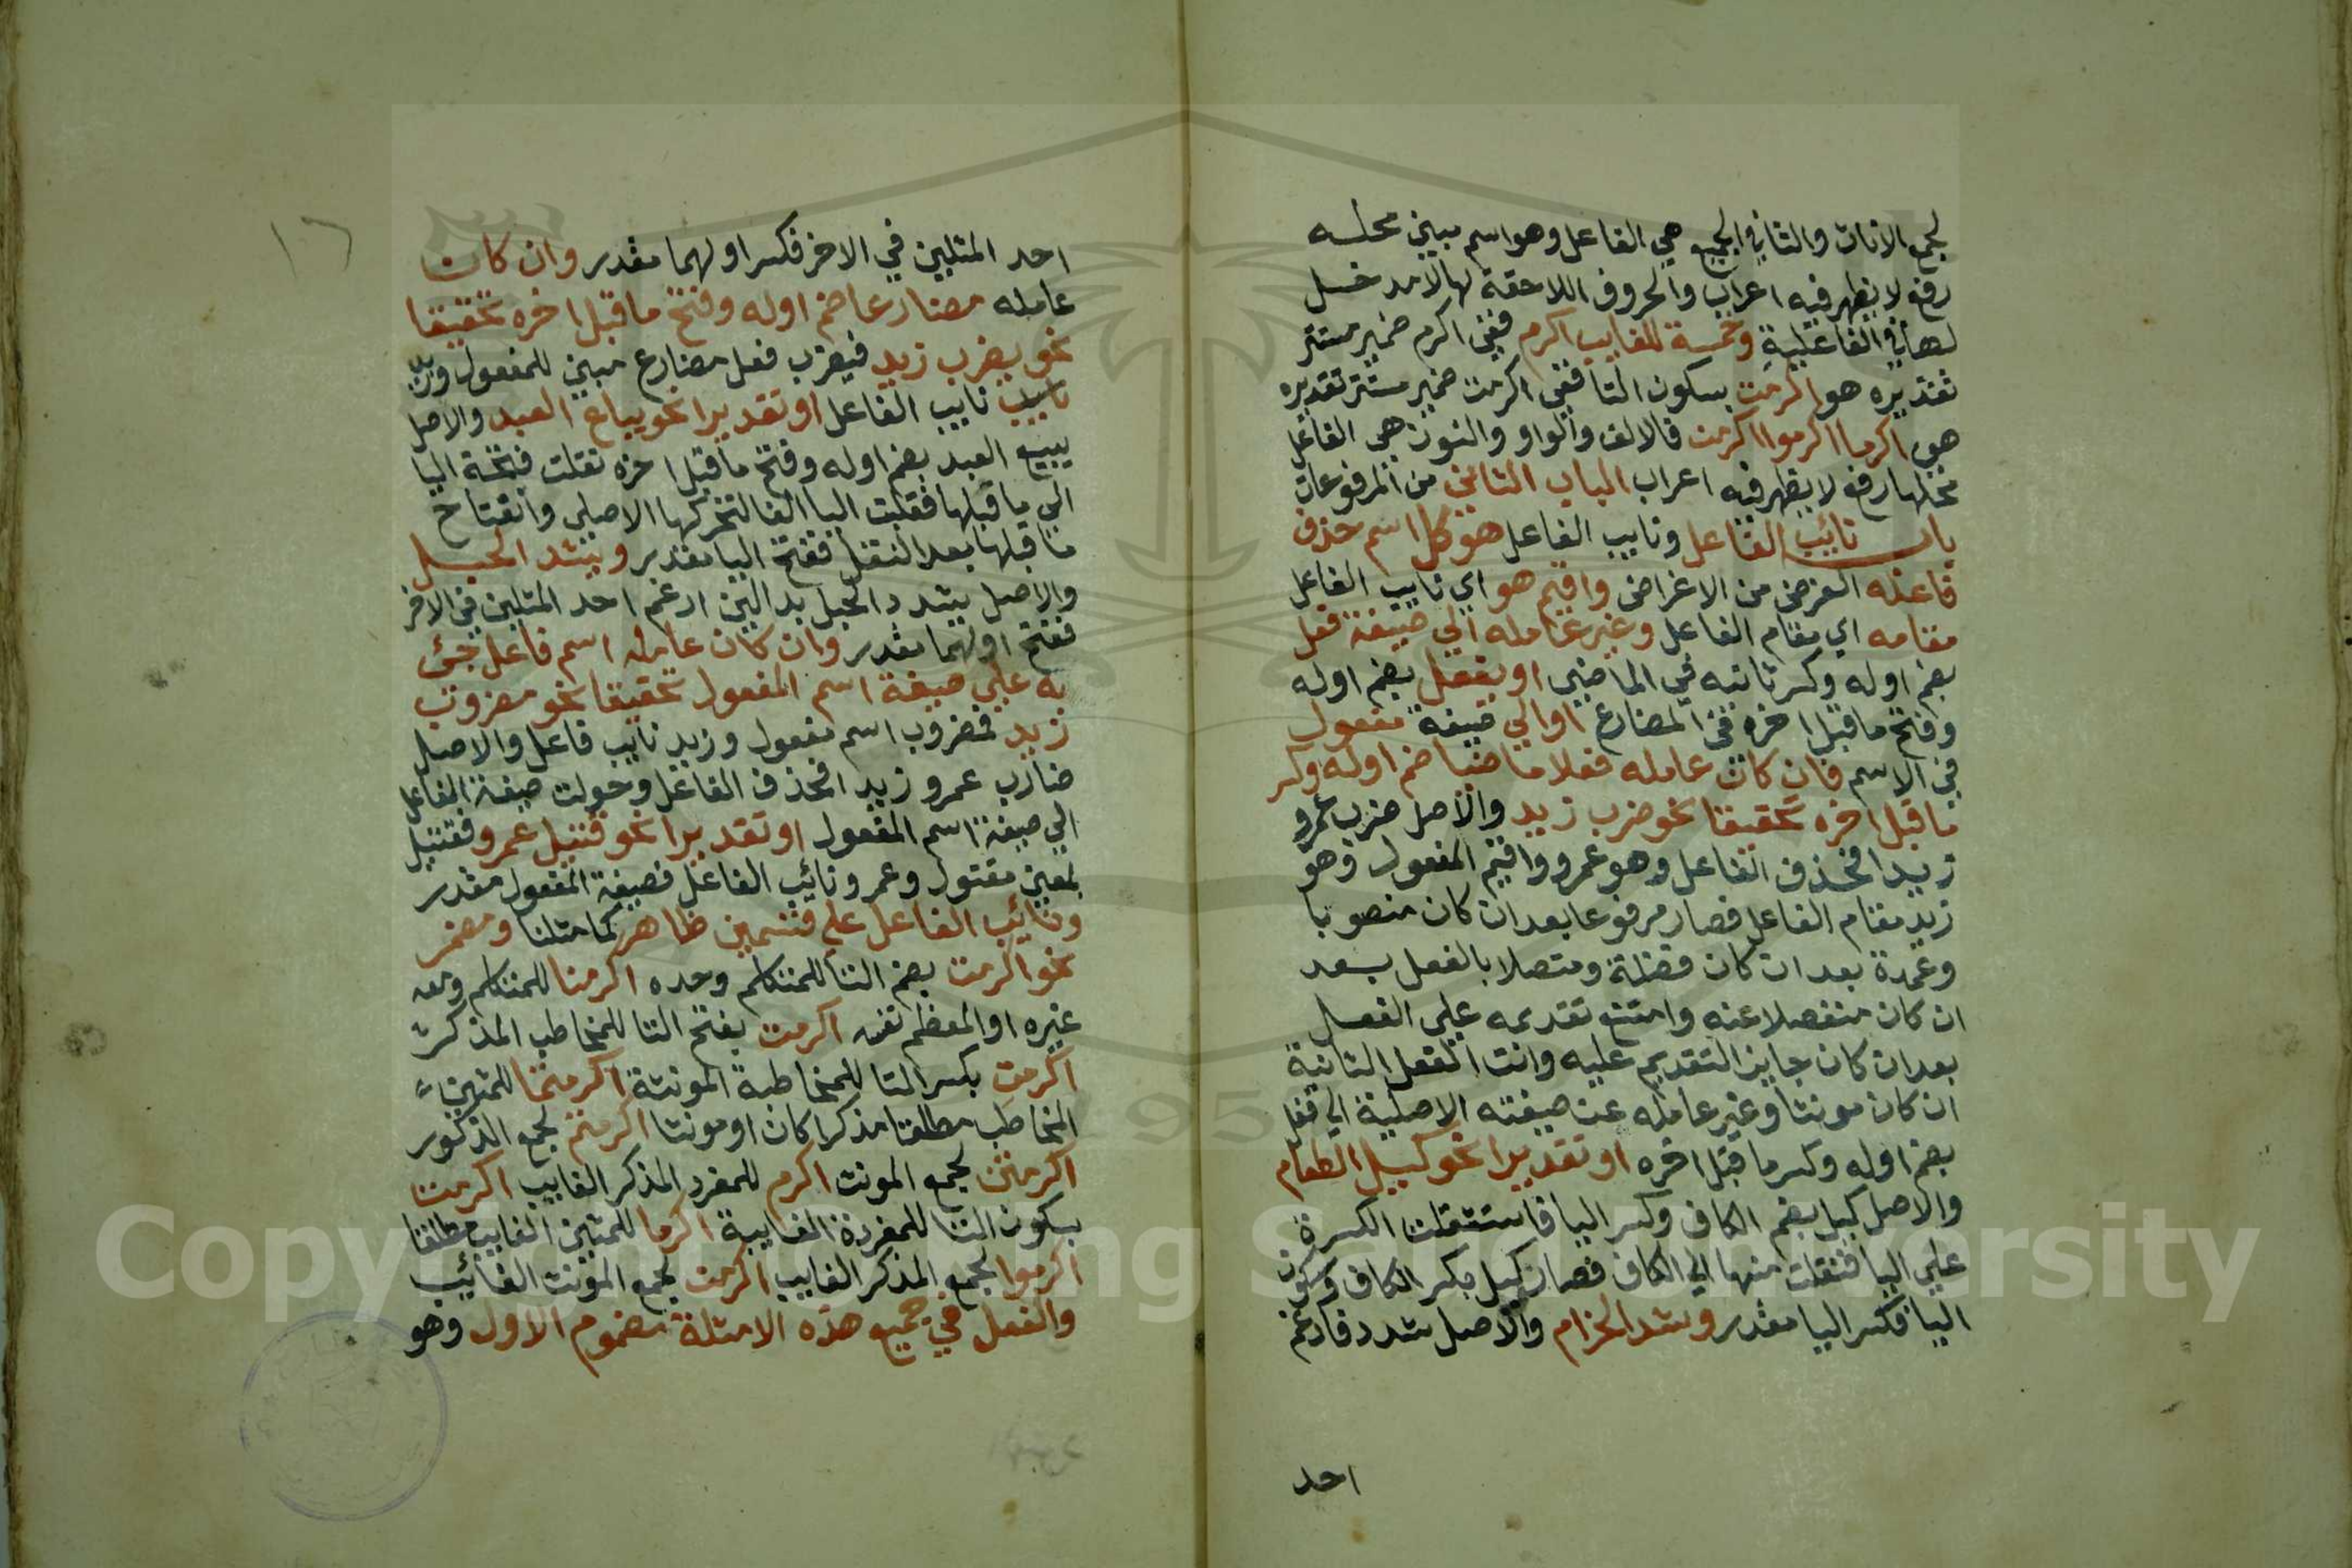 لجمع الاناث والتا في الجميع هي الفاعل وهو اسم مبني محله
رفع لا يظهر فيه اعراب والحروف اللاحقة لها لا مدخل
لها في الفاعلية وخمسة للغايب اكرم ففي اكرم ضمير مستتر
تقديره هو اكرمت بسكون التا ففي اكرمت ضمير مستتر تقديره
هي اكرما اكرموا اكرمن فالالف والواو والنون هي الفاعل
محلها رفع لا يظهر فيه اعراب الباب الثاني من المرفوعات
باب نائب الفاعل ونايب الفاعل هو كل اسم حذف
فاعله لغرض من الاغراض واقيم هو اي نايب الفاعل
مقامه اي مقام الفاعل وغير عامله الي صيغة فعل
بضم اوله وكسر ثانيه في الماضي او يفعل بضم اوله
وفتح ما قبل اخره في المضارع او الي صيغة مفعول
في الاسم فان كان عامله فعلا ماضيا ضم اوله وكسر
ما قبل اخره تحقيقا نحو ضرب زيد والاصل ضرب عمرو
زيدا فحذف الفاعل وهو عمرو واقيم المفعول وهو
زيد مقام الفاعل فصار مرفوعا بعد ان كان منصوبا
وعمدة بعد ان كان فضلة ومتصلا بالفعل بعد
ان كان منفصلا عنه وامتنع تقديمه علي الفعل
بعد ان كان جايز التقديم عليه وانث الفعل لتانيثه
ان كان مونثا وغير عامله عن صيغته الاصلية الي فعل
بضم اوله وكسر ما قبل اخره او تقديرا نحو كيل الطعام
والاصل كيل بضم الكاف وكسر اليا فاستثقلت الكسرة
علي اليا فنقلت منها الي الكاف فصار كيل بكسر الكاف وسكون
اليا فكسر اليا مقدر وشد الحزام والاصل شدد فادغم
احد
١٦
احد المثلين في الاخر فكسر اولهما مقدر وان كان
عامله مضارعا ضم اوله وفتح ما قبل اخره تحقيقا
نحو يضرب زيد فيضرب فعل مضارع مبني للمفعول وزيد
نايب الفاعل او تقديرا نحو يباع العبد والاصل
يبيع العبد بضم اوله وفتح ما قبل اخره نقلت فتحة اليا
الي ما قبلها فقلبت اليا الفا لتحركها الاصلي وانفتاح
ما قبلها بعد النقل ففتح اليا مقدر ويشد الحبل
والاصل يشدد الحبل بدالين ادغم احد المثلين في الاخر
ففتح اولهما مقدر وان كان عامله اسم فاعل جئ
به علي صيغة اسم المفعول تحقيقا نحو مضروب
زيد فمضروب اسم مفعول وزيد نايب فاعل والاصل
ضارب عمرو زيدا فحذف الفاعل وحولت صيغة الفاعل
الي صيغة اسم المفعول او تقديرا نحو قتيل عمرو فقتيل
بمعني مقتول وعمرو نائب الفاعل فصيغة المفعول مقدر
ونائب الفاعل علي قسمين ظاهر كما مثلنا ومضمر
نحو اكرمت بضم التا للمتكلم وحده اكرمنا للمتكلم ومعه
غيره او المعظم نفسه اكرمت بفتح التا للمخاطب المذكر
اكرمت بكسر التا للمخاطبة المونثة اكرمتما للمثني
المخاطب مطلقا مذكرا كان او مونثا اكرمتم لجمع الذكور
اكرمتن لجمع المونث اكرم للمفرد المذكر الغايب اكرمت
بسكون التا للمفردة الغايبة اكرما للمثني الغايب مطلقا
اكرموا لجمع المذكر الغايب اكرمن لجمع المونث الغائب
والفعل في جميع هذه الامثلة مضموم الاول وهو
Copyright © King Saud University